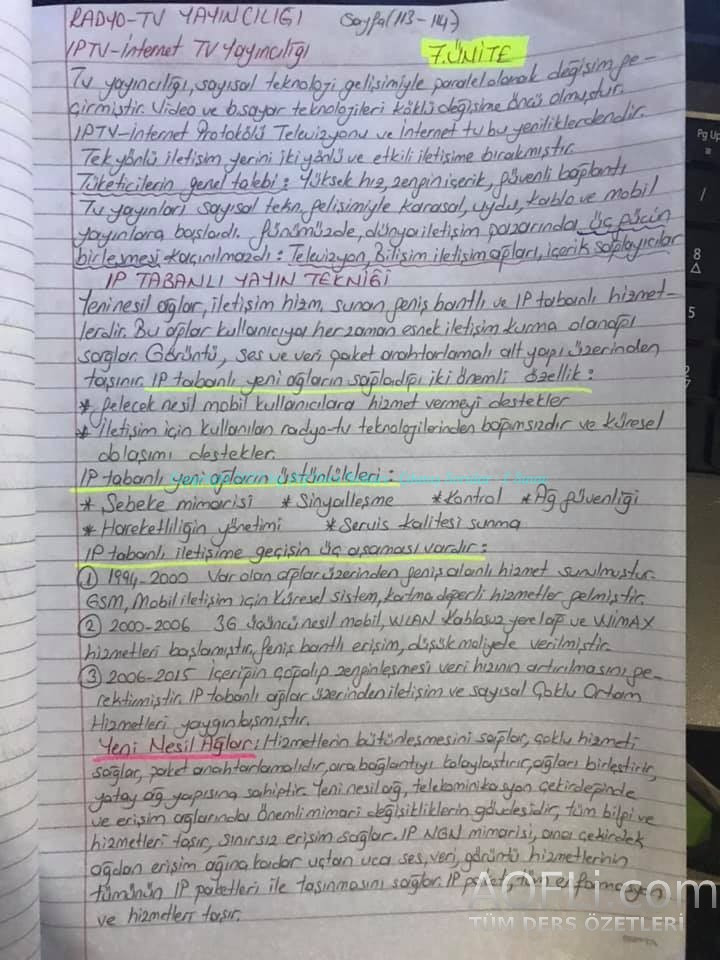 RADYO-TV YAYINCILIĞI Sayfa(113-114)
IPTV-İnternet TV Yayıncılığı 7.ÜNİTE
Tv yayıncılığı, sayısal teknoloji gelişimiyle paralel olarak değişim ge-
çirmiştir. Video ve b.sayar teknolojileri köklü değişime öncü olmuştur.
IPTV-İnternet Protokölü Televizyonu ve İnternet tv bu yeniliklerdendir.
Tek yönlü iletişim yerini iki yönlü ve etkili iletişime bırakmıştır.
Tüketicilerin genel talebi: Yüksek hız, zengin içerik, güvenli bağlantı
Tv yayınları sayısal tekn. gelişimiyle karasal, uydu, kablo ve mobil
yayınlara başladı. Günümüzde, dünya iletişim pazarında üç gücün
birleşmesi kaçınılmazdı: Televizyon, Bilişim iletişim ağları, içerik sağlayıcılar
IP TABANLI YAYIN TEKNİĞİ
Yeni nesil ağlar, iletişim hizm. sunan geniş bantlı ve IP tabanlı hizmet-
lerdir. Bu ağlar kullanıcıya her zaman esnek iletişim kurma olanağı
sağlar. Görüntü, ses ve veri paket anahtarlamalı alt yapı üzerinden
taşınır. IP tabanlı yeni ağların sağladığı iki önemli özellik:
* gelecek nesil mobil kullanıcılara hizmet vermeyi destekler
* iletişim için kullanılan radyo-tv teknolojilerinden bağımsızdır ve küresel
dolaşımı destekler.
IP tabanlı yeni ağların üstünlükleri:
* Şebeke mimarisi * Sinyalleşme * Kontrol * Ağ güvenliği
* Hareketliliğin yönetimi * Servis kalitesi sunma
IP tabanlı iletişime geçişin üç aşaması vardır:
1 1994-2000 Var olan ağlar üzerinden geniş alanlı hizmet sunulmuştur.
GSM, Mobil iletişim için Küresel sistem, katma değerli hizmetler gelmiştir.
2 2000-2006 3G üçüncü nesil mobil, WLAN Kablosuz yerel ağ ve WiMAX
hizmetleri başlamıştır, geniş bantlı erişim, düşük maliyetle verilmiştir.
3 2006-2015 İçeriğin çoğalıp zenginleşmesi veri hızının artırılmasını ge-
rektirmiştir. IP tabanlı ağlar üzerinden iletişim ve sayısal Çoklu Ortam
Hizmetleri yaygınlaşmıştır.
Yeni Nesil Ağlar: Hizmetlerin bütünleşmesini sağlar, çoklu hizmeti
sağlar, paket anahtarlamalıdır, ara bağlantıyı kolaylaştırır, ağları birleştirir,
yatay ağ yapısına sahiptir. Yeni nesil ağ, telekominikasyon çekirdeğinde
ve erişim ağlarında önemli mimari değişikliklerin gövdesidir, tüm bilgi ve
hizmetleri taşır, sınırsız erişim sağlar. IP NGN mimarisi, ana çekirdek
ağdan erişim ağına kadar uçtan uca ses, veri, görüntü hizmetlerinin
tümünün IP paketleri ile taşınmasını sağlar. IP paket, tüm
ve hizmetleri taşır.
AOFLi.com
TÜM DERS ÖZETLERİ
Pg Up
8
5